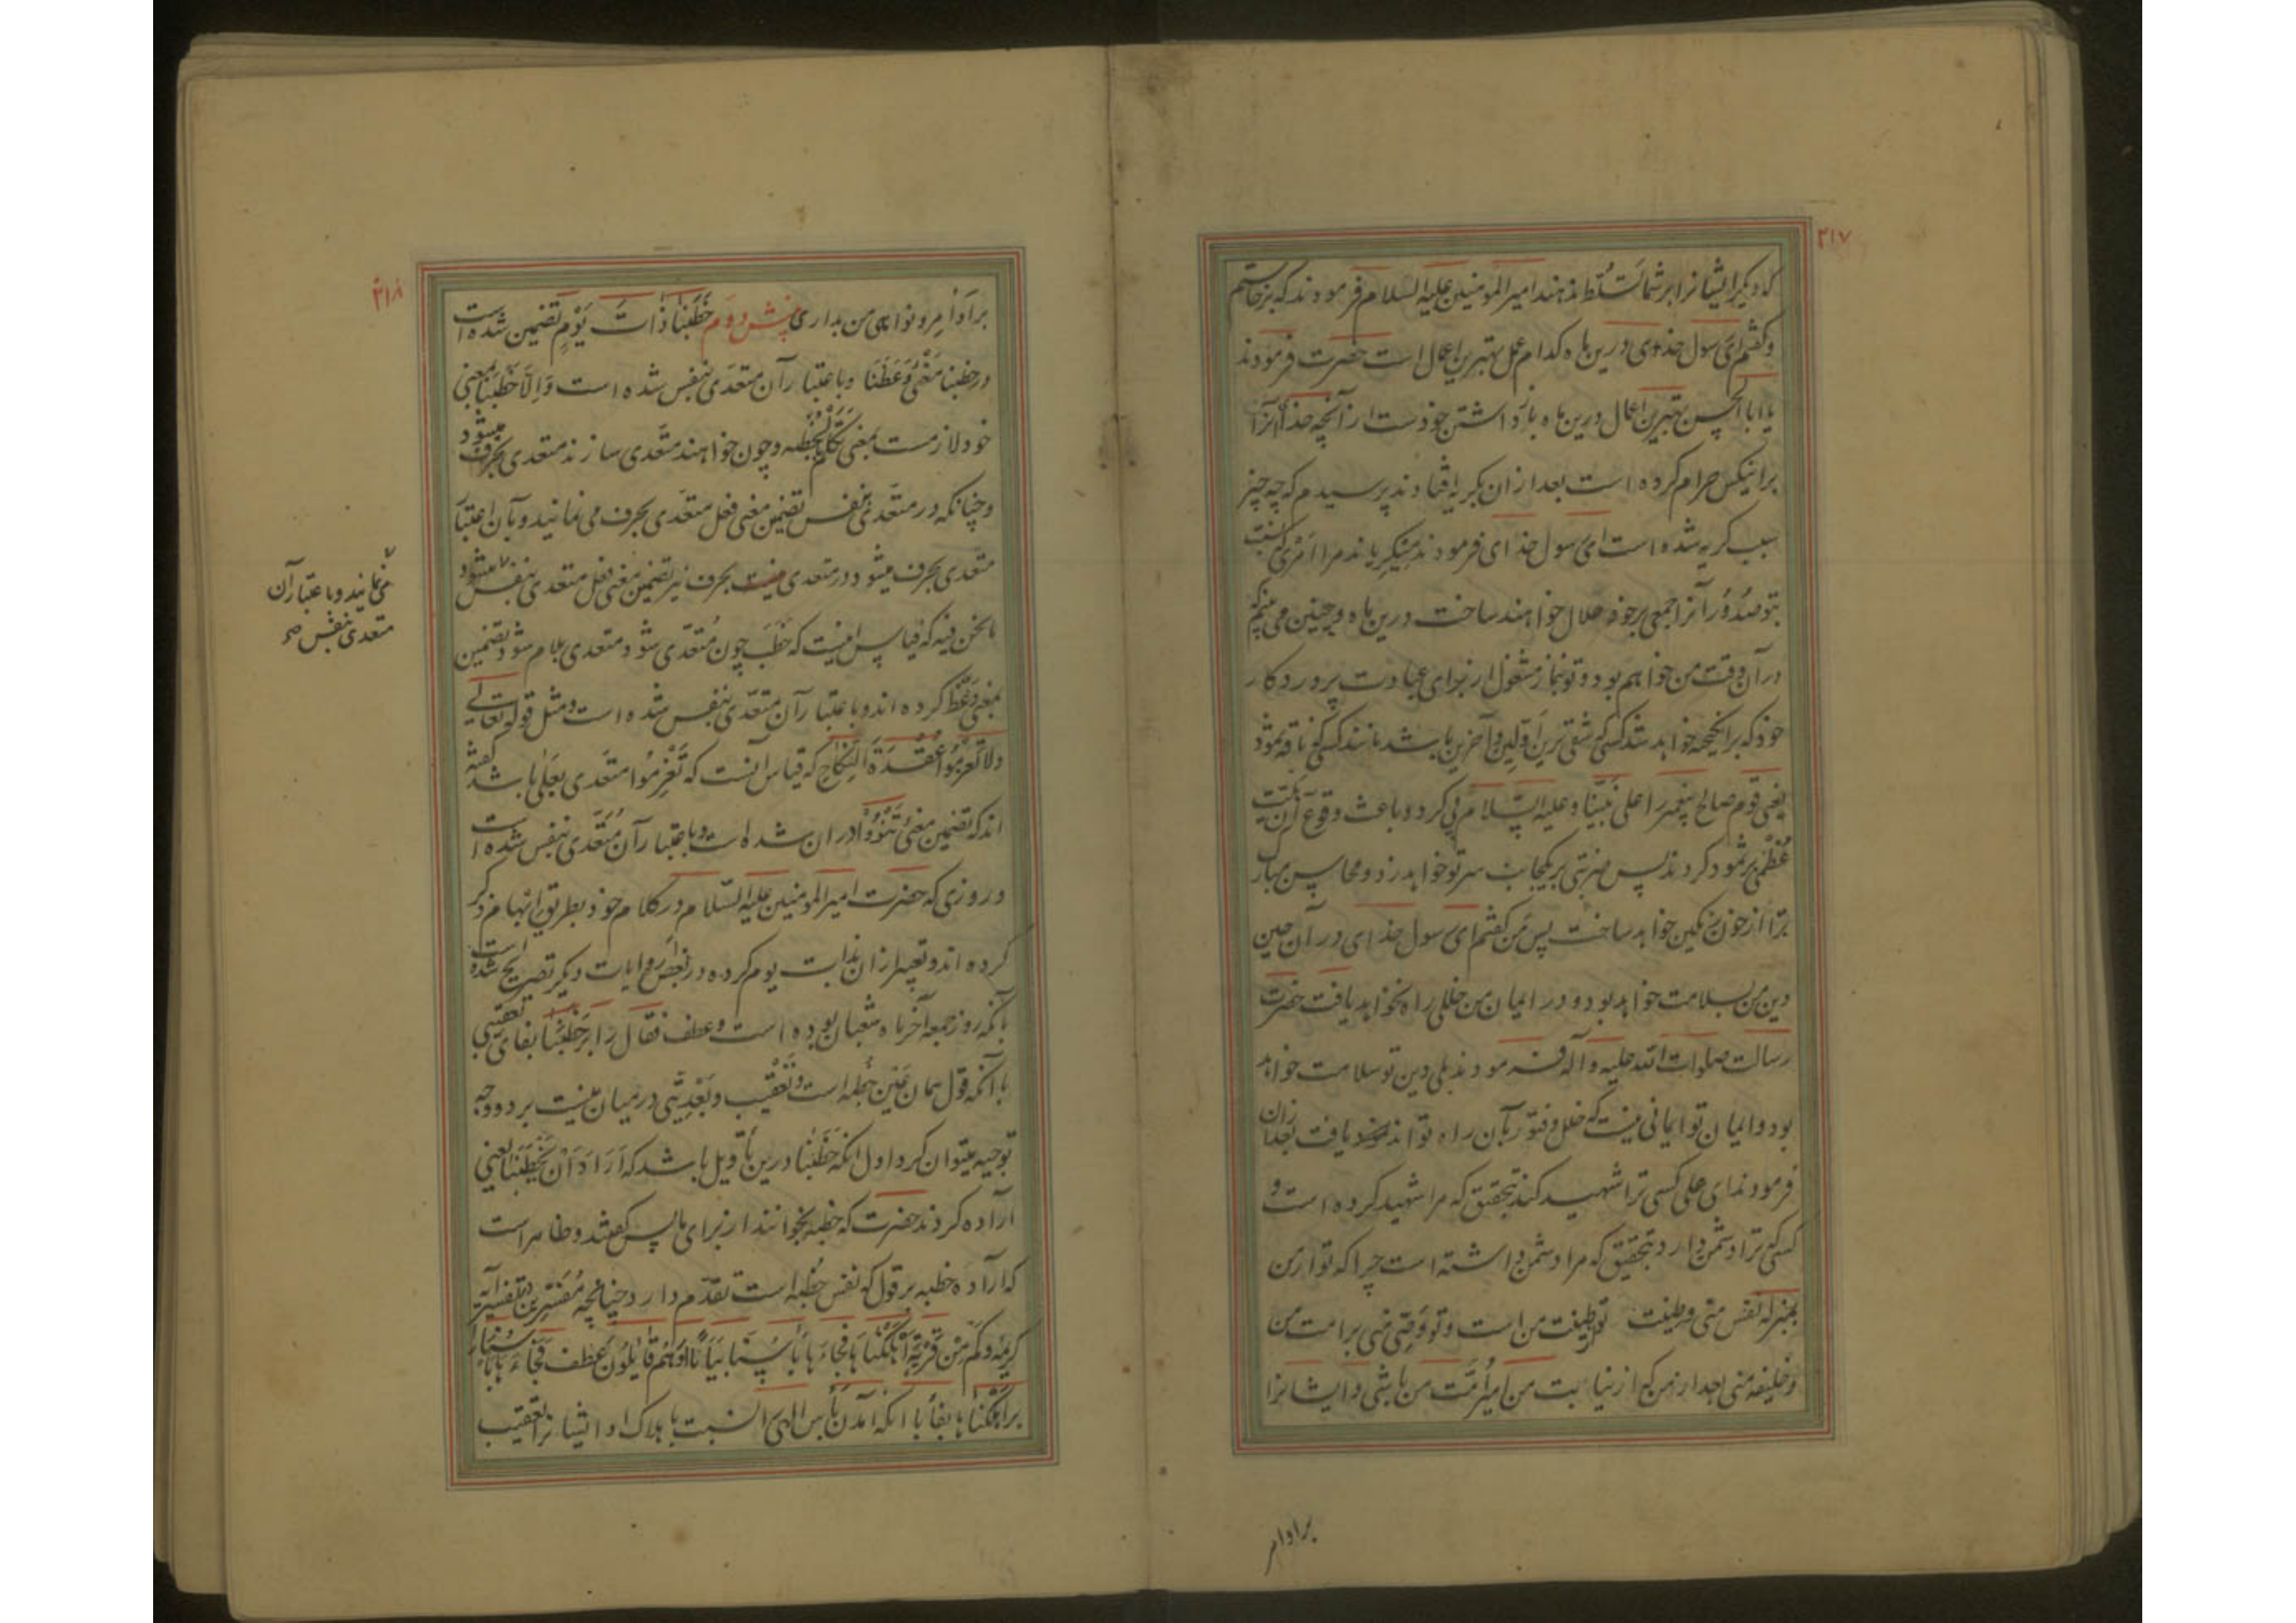 ۲۱۷
که دیگر ایشانرا بر شما تسلط ندهند امیر المومنین علیه السلام فرمودند که برخاستم
و گفتم ای رسول خدای درین ماه کدام عمل بهترین اعمال است حضرت فرمودند
یا ابا الحسن بهترین اعمال درین ماه باز داشتن خودست از آنچه خدا آنرا
برانیکس حرام کرده است بعد از ان بگریه افتادند پرسیدم که چه چیز
سبب گریه شده است ای رسول خدای فرمودند میگریاند مرا امری که نسبت
بتو صدور آنرا جمعی برخود حلال خواهند ساخت درین ماه و چنین می بینم که
در آن وقت من خواهم بود و تو بنماز مشغول از برای عبادت پروردگار
خود که برانگیخته خواهد شد کسی که شقی ترین اولین و آخرین باشد مانند کسی که ناقه ثمود
یعنی قوم صالح پیغمبر را علی نبینا و علیه السلام پی کرد و باعث وقوع آن نکبت
عظمی بر ثمود کردند پس ضربتی بر یکجانب سر تو خواهد زد و محاسن مبارک
ترا از خون رنگین خواهد ساخت پس من گفتم ای رسول خدای در آن حین
دین من بسلامت خواهد بود و در ایمان من خللی راه نخواهد یافت حضرت
رسالت صلوات الله علیه و آله فرمودند بلی دین تو سلامت خواهد
بود و ایمان تو ایمانی نیست که خلل و فتور بآن راه تواند یافت بعد ازان
فرمودند ای علی کسی ترا شهید کند بتحقیق که مرا شهید کرده است و
کسی که ترا دشمن دارد بتحقیق که مرا دشمن داشته است چرا که تو از من
بمنزله نفس منی و طینت تو از طینت من است و تو وصی منی بر امت من
و خلیفه منی بعد از من که از نیابت من امیر امت من باشی و ایشانرا
براوامر
۲۱۸
بر اوامر و نواهی من بداری پنش دوم خطبنا ذات یوم تضمین شده است
در خطبنا معنی وعظنا و باعتبار آن متعدی بنفس شده است والا خطبنا یعنی
خود لازمست بمعنی تکلم بخطبه و چون خواهند متعدی سازند متعدی بحرف میشود
و چنانکه در متعدی بنفس تضمین معنی فعل متعدی بحرف می نمانید و بآن اعتبار
متعدی بحرف میشود در متعدی بحرف نیز تضمین معنی فعل متعدی بنفس میشود
ما نحن فیه که قیاس اینست که خطب چون متعدی شود متعدی بلام شود تضمین
بمعنی وعظ کرده اند و باعتبار آن متعدی بنفس شده است و مثل قوله تعالی
ولا تعزموا عقدة النکاح که قیاس آنست که تعزموا متعدی بعلی باشد گفته
اند که تضمین معنی تنووا در ان شده است و باعتبار آن متعدی بنفس شده است
و روزی که حضرت امیر المومنین علیه السلام در کلام خود بطریق ابهام ذکر
کرده اند و تعبیر ازان بذات یوم کرده در بعض روایات دیگر تصریح شده است
بآنکه روز جمعه آخر ماه شعبان بوده است و عطف فقال را بر خطبنا بفای تعقیبی
با آنکه قول همان عین خطبه است و تعقیب و بعدیتی در میان نیست بر دو وجه
توجیه میتوان کرد اول آنکه خطبنا درین تأویل باشد که اراد أن یخطبنا یعنی
اراده کردند حضرت که خطبه بخوانند از برای ما پس گفتند و ظاهر است
که اراده خطبه بر قول که نفس خطبه است تقدم دارد چنانچه مفسرین در تفسیر آیه
کریمه و کم من قریة اهلکناها فجاءها بأسنا بیاتا او هم قائلون عطف فجاءها بأسنا را
بر اهلکناها بفأ با انکه آمدن بأس الهی را نسبت باهلاک او ایشانرا تعقیب
می نمانید و باعتبار آن
متعدی بنفس صح